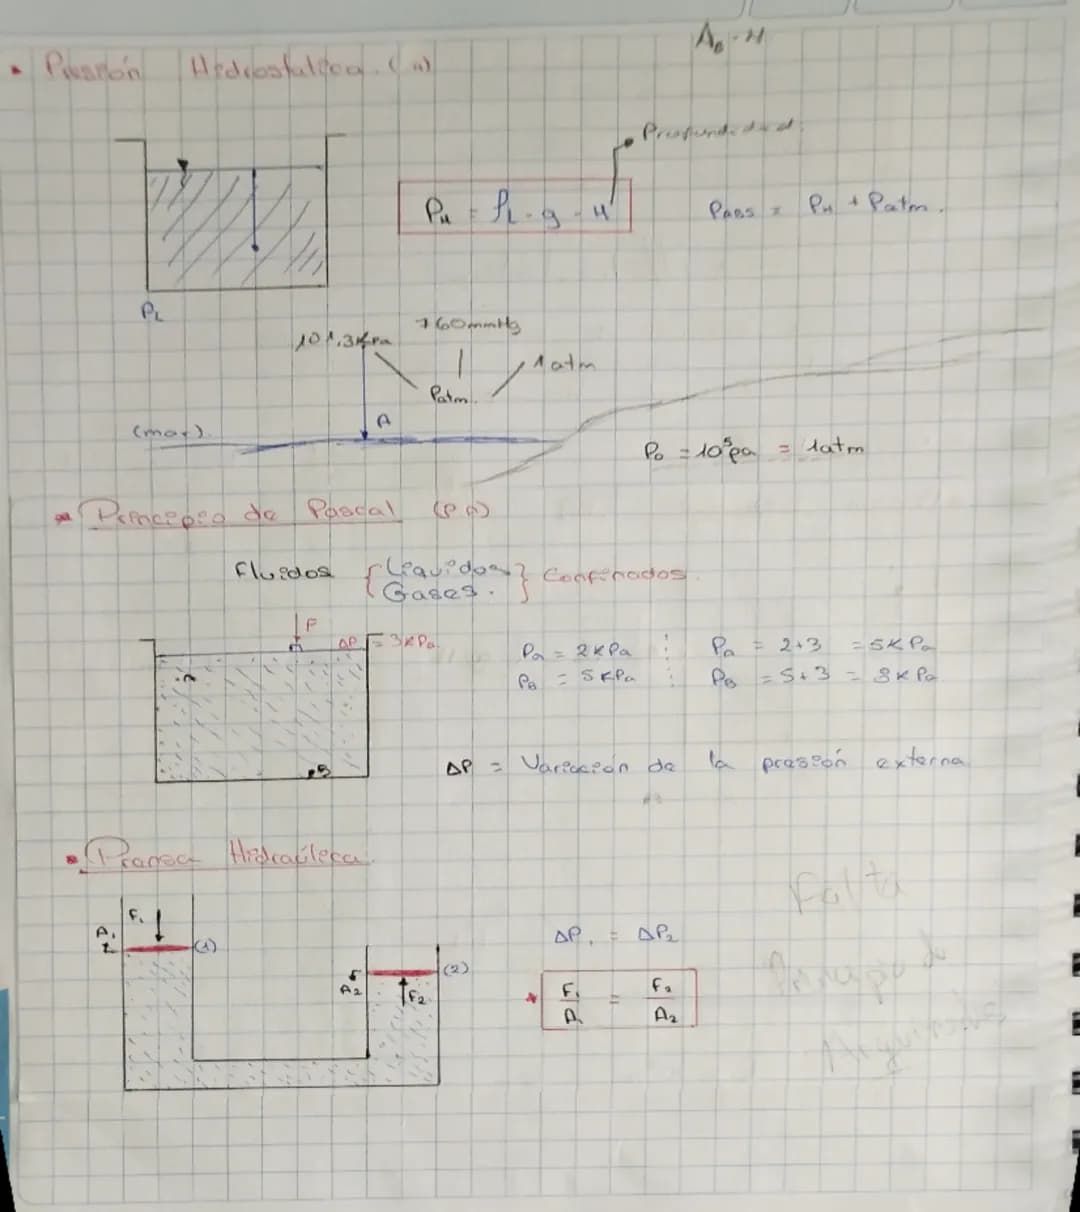 A₀ · H
• Presión Hidrostatica. (H)
Profundidad.
P_H = ρ_L · g · H
Pabs = P_H + Patm.
ρ_L
760mmHg
101,3KPa
1atm
Patm.
A
(mar).
P₀ = 10⁵pa = 1atm
Principio de Pascal (PP)
Fluidos { Liquidos Gases. } Confinados.
F
ΔP = 3KPa
Pa = 2KPa ⋮ Pa = 2+3 = 5KPa
P_B = 5KPa ⋮ P_B = 5+3 = 8KPa
B
ΔP = Variación de la presión externa
• Prensa Hidraúlica
Falta
F₁
A₁
(1)
ΔP₁ = ΔP₂
(2)
A₂
F₂
* F₁/A₁ = F₂/A₂
Principio de
Arquimides